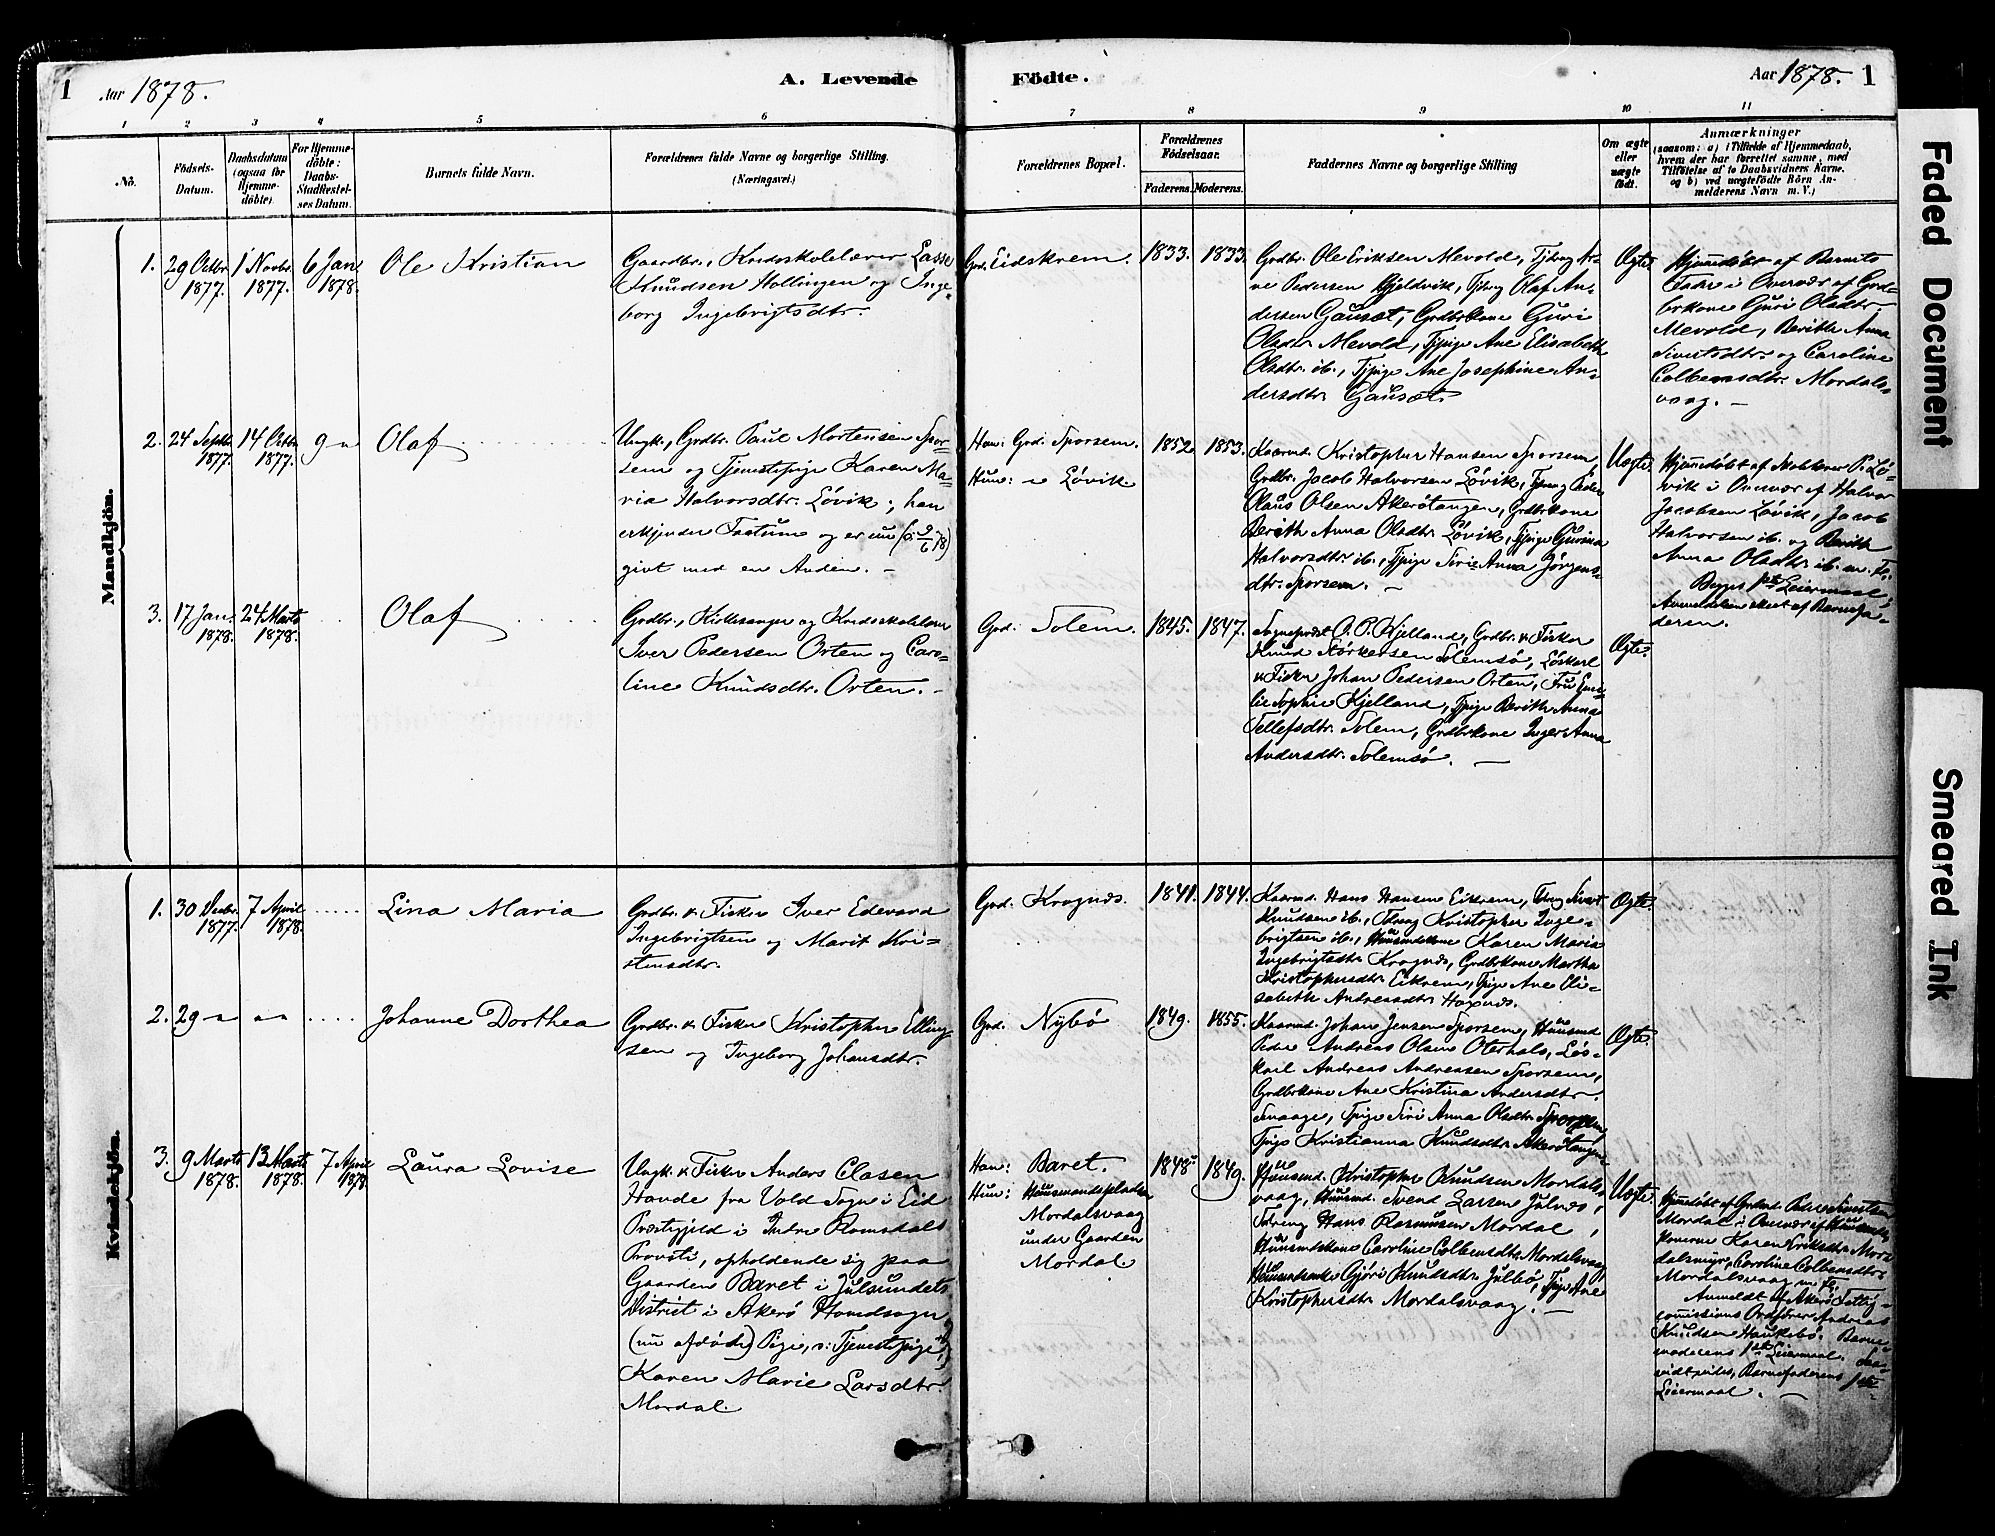 1
Aar 1878.
A. Levende
Födte.
Aar 1878.
1
1
2
3
4
5
6
7
8
9
10
11
No.
Födsels-
Datum.
Daabsdatum
(ogsaa for
Hjemme-
döbte).
For Hjemme-
döbte:
Daabs-
Stadfæstel-
ses Datum.
Barnets fulde Navn.
Forældrenes fulde Navne og borgerlige Stilling.
(Næringsvei.)
Forældrenes Bopæl.
Forældrenes
Födselsaar.
Faderens.
Moderens.
Faddernes Navne og borgerlige Stilling
Om ægte
eller
uægte
født.
Anmærkninger
(saasom: a) i Tilfælde af Hjemmedaab,
hvem der har forrettet samme, med
Tilföielse af to Daabsvidners Navne.
og b) ved uægtefödte Börn An-
melderens Navn m. V.)
Mandkjön.
1.
29 Octbr.
1877.
1 Novbr.
1877.
6 Jan.
1878.
Ole Kristian
Gaardbr., Kredsskolelærer Lasse
Knudsen Hollingen og Inge-
borg Ingebrigtsdtr.
Grd. Eidskrem.
1833.
1833.
Grdbr. Ole Eriksen Mevold, Tjdrng Ar-
ne Pedersen Gjeldvik, Tjdrng Olaf An-
dersen Gauset, Grdbrkone Guri
Olsdtr. Mevold, Tjpige Ane Elisabeth
Olsdtr. ib., Tjpige Ane Josephine An-
dersdtr. Gauset.
Ægte.
Hjemmedøbt af Barnets
Fader i Overvær af Grd-
brkone Guri Olsdtr.
Mevold, Berithe Anna
Sivertsdtr. og Caroline
Colbensdtr. Mordals-
vaag. —
2.
24 Septbr.
1877.
14 Octbr.
1877.
9 —"—
Olaf
Ungk., Grdbr. Paul Mortensen Spor-
sem og Tjenestepige Karen Ma-
ria Halvorsdtr. Løvik; han
erkjender Factum og er nu (o: 9/6 78)
givt med en Anden. —
Han: Grd. Sporsem.
Hun: — Løvik.
1852
1853.
Kaarmd. Kristopher Hansen Sporsem,
Grdbr. Jacob Halvorsen Løvik, Tjdrng Peder
Claus Olsen Akerøtangen, Grdbrkone
Berith Anna Olsdtr. Løvik, Tjpige Gurina
Halvorsdtr. ib., Tjpige Siri Anna Jørgens-
dtr. Sporsem. —
Uægte.
Hjemmedøbt af Skolelærer P. Lø-
vik i Overvær af Halvor
Jacobsen Løvik, Jacob
Halvorsen ib. og Berith
Anna Olsdtr. ib. m. Fl.
Begges 1ste Leiermaal;
Anmeldelsen skeet af Barnefa-
deren.
3.
17 Jan.
1878.
24 Marts
1878.
Olaf
Grdbr., Kirkesanger og Kredsskolelærer
Iver Pedersen Orten og Caro-
line Knudsdtr. Orten. —
Grd. Solem.
1845.
1847.
Sognepræst O. P. Kjelland, Grdbr. & Fisker
Knud Størkersen Solemsø, Løskarl
& Fisker Johan Pedersen Orten, Fru Emi-
lie Sophie Kjelland, Tjpige Berith Anna
Tellefsdtr. Solem, Grdbrkone Inger Anna
Andersdtr. Solemsø. —
Ægte.
Kvindekjön.
1.
30 Decbr.
1877.
7 April
1878.
Lina Maria
Grdbr. & Fisker Iver Edevard
Ingebrigtsen og Marit Kri-
stensdtr.
Grd. Krognæs.
1841.
1844.
Kaarmd. Hans Hansen Eikrem, Tdrng Sivert
Knudsen ib., Tdreng Kristopher Inge-
brigtsen ib., Huusmdskone Karen Maria
Ingebrigtsdtr. Krognæs, Grdbrkone Martha
Kristophersdtr. Eikrem, Tpige Ane Eli-
sabeth Andreasdtr. Hoxnæs.
Ægte.
2.
29 —"—
—"—
Johanne Dorthea
Grdbr. & Fisker Kristopher Elling-
sen og Ingeborg Johansdtr.
Grd. Nybø
1849.
1855.
Kaarmd. Johan Jensen Sporsem, Huusmd.
Peder Andreas Olsen Oterhals, Løs-
karl Andreas Andreasen Sporsem,
Grdbrkone Ane Kristina Andersdtr.
Snaage, Tpige Siri Anna Olsdtr. Sporsem,
Tpige Kristianna Knudsdtr. Akerøtangen.
Ægte.
3.
9 Marts
1878.
13 Marts
1878.
7 April
1878.
Laura Lovise
Ungk. & Fisker Anders Clasen
Havde fra Vold Sogn i Eid
Præstegjeld i Indre Romsdals
Provsti, opholdende sig paa
Gaarden Baret i Julsundets
District i Akerø Hovedsogn
(nu afdøde) Pige, o: Tjenestepige,
Karen Marie Larsdtr.
Mordal.
Han: Baret.
Hun: Huusmandspladsen
Mordalsvaag
under Gaarden
Mordal.
1848
1849.
Huusmd. Christopher Knudsen Mordals-
vaag, Huusmd. Svend Larsen Julnes,
Tdreng Hans Rasmussen Mordal,
Huusmdskone Caroline Colbensdtr. Mordalsvaag,
Huusmdskone Gjøri Knudsdtr. Julbø, Tpige Ane
Kristophersdtr. Mordalsvaag. —
Uægte.
Hjemmedøbt af Grdmd. Peder
Mordal i Overvær af Huusmds-
konerne Karen Eriksdtr. Mor-
dalsmyr, Caroline Colbensdtr.
Mordalsvaag m. Fl.
Anmeldt af Akerø Fattig-
commissions Ordfører Andreas
Knudsen Haukebø. Barne-
moderens 1ste Leiermaal. Saa-
vidt vides, Barnefaderens 1ste
Leiermaal. —
Faded Document
Smeared Ink